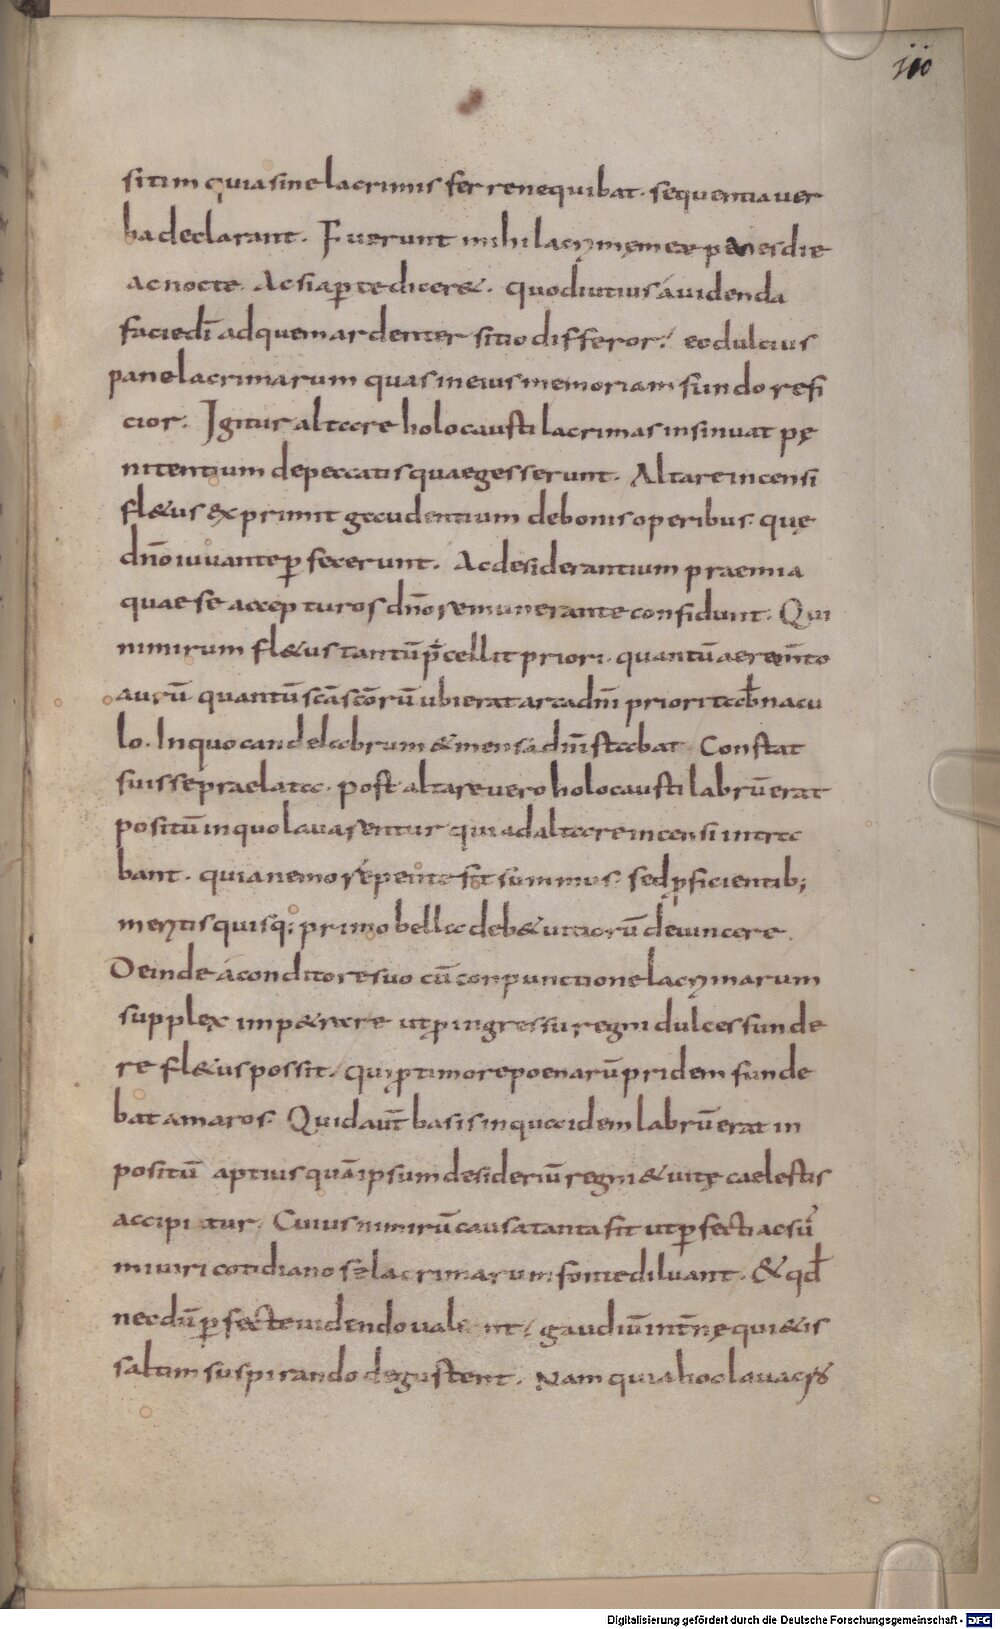 iio
sitim quia sine lacrimis ferre nequibat. sequentia uer
ba declarant. Fuerunt mihi lacrymęmeę panes die
ac nocte. Ac si aꝑte diceret. quo diutius á uidenda
facie dī ad quem ardenter sitio differor; eo dulcius
pane lacrimarum quas in eius memoriam fundo refi
cior. Igitur altare holocausti lacrimas insinuat pę
nitentium de peccatis quae gesserunt. Altare incensi
fletus exprimit gaudentium de bonis operibus. quę
dn̄o iuuante ꝑfecerunt. Ac desiderantium praemia
quae se accepturos dn̄o remunerante confidunt. Qui
nimirum fletus tantū p̄cellit priori. quantū aeram̄to
aurū quantū scā scōrū ubi erat arca dn̄i priori tab̄nacu
lo. In quo candelabrum & mensa dn̄i stabat Constat
fuisse praelata. post altare uero holocausti labrū erat
positū in quo lauarentur qui ad altare incensi intra
bant. quia nemo repente fit summus. sed ꝓficientib;
mentis quisq; primo bella debet uitiorū deuincere.
Deinde á conditore suo cū conpunctione lacrymarum
supplex impetrare ut ꝓ ingressu regni dulces funde
re fletus possit. qui ꝓ timore poenarū pridem funde
bat amaros. Quid aut̄ basis in qua idem labrū erat in
positū aptius quā ipsum desideriū regni & uitę caelestis
accipiatur. Cuius nimirū causa tanta fit ut ꝑfecti ac sū
mi uiri cotidiano se lacrimarum fonte diluant. & qd̄
necdū ꝑfecte uidendo ualent. gaudiū int̄nę quietis
saltim suspirando degustent. Nam quia hoc lauacrū
Digitalisierung gefördert durch die Deutsche Forschungsgemeinschaft - DFG